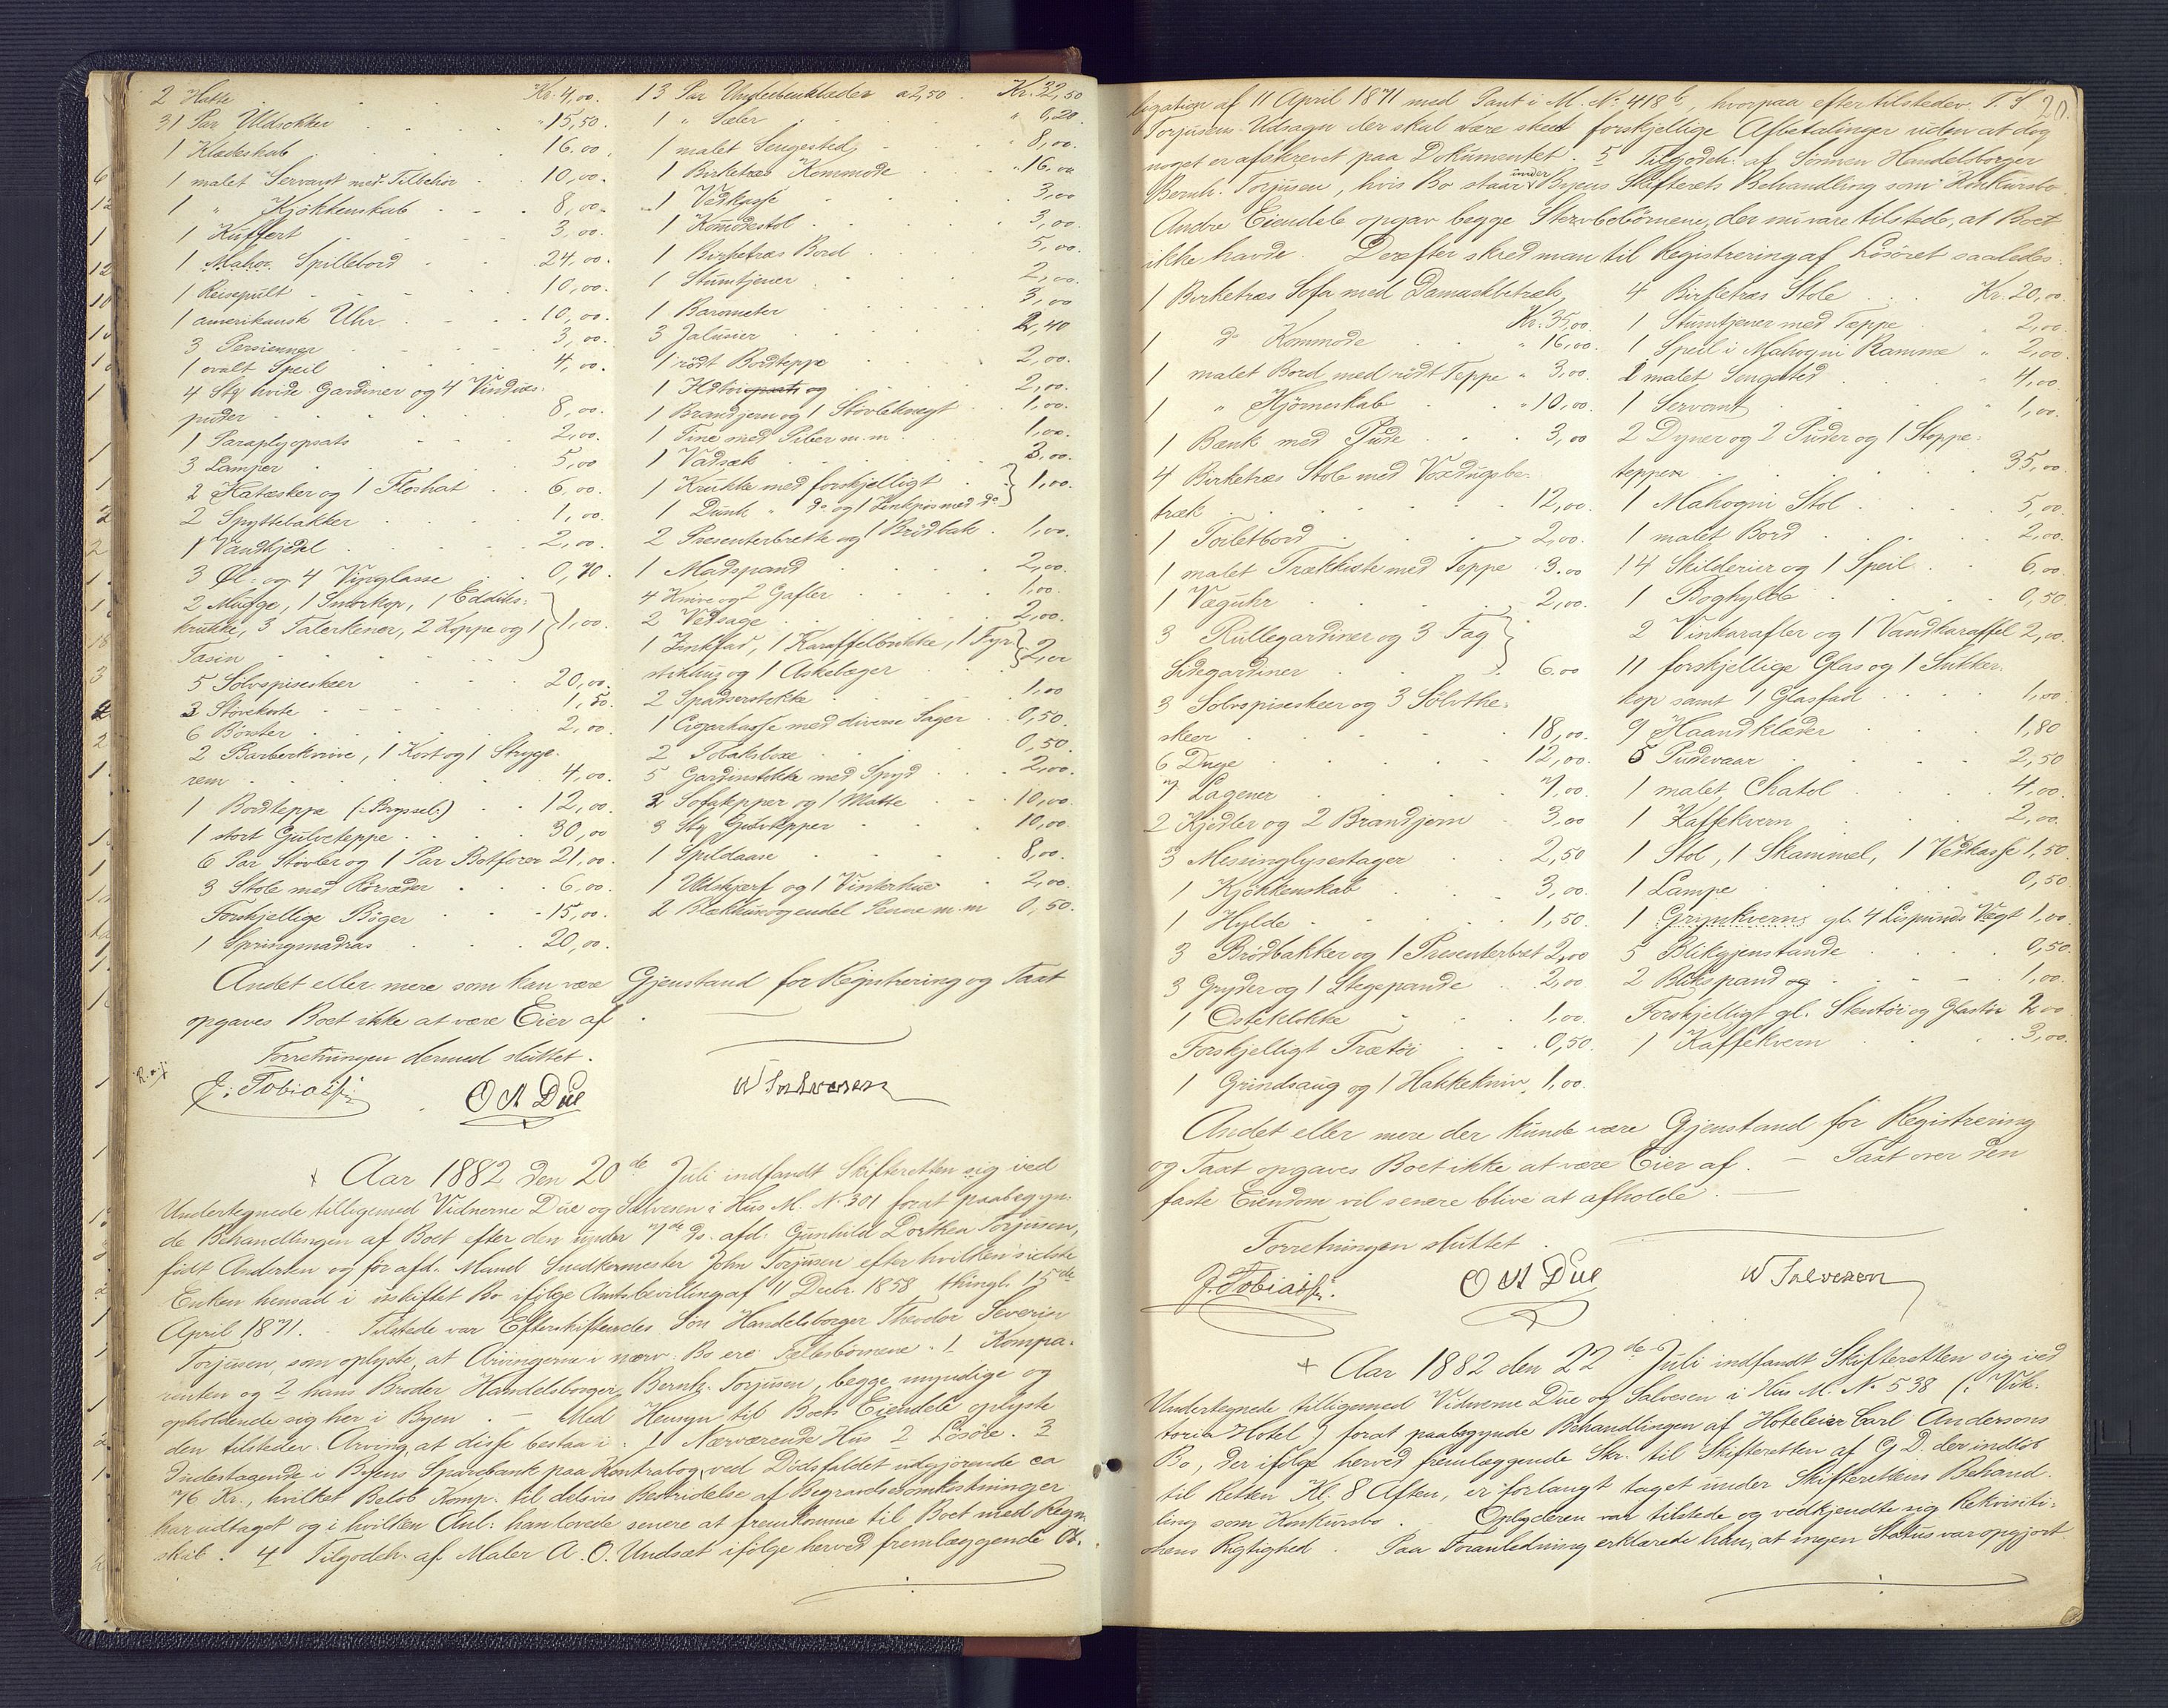 2 Hatte . . . Kr. 4,00.
31 Par Uldsokker . . . " 15,50.
1 Klædeskab . . . 16.00.
1 malet Servant med Tilbehör . 10,00.
1 " Kjökkenskab . . . 8,00.
1 Kuffert . . . 3,00.
1 Mahog. Spillebord . . 24,00.
1 Reisepult . . . 10,00.
1 amerikansk Uhr . . . 10,00.
3 Persienner . . . 3,00.
1 ovalt Speil . . . 4,00.
4 Sty hvide Gardiner og 4 Vindues-
puder . . . 8,00.
1 Paraplyopsats . . . 2,00.
3 Lamper . . . 5,00
2 Hatæsker og 1 Floshat . . 6,00.
2 Spyttebakker . . . 1,00.
1 Vandkjedel . . . 2,00.
3 Øl- og 4 Vinglasse . . . 0,70.
2 Mugge, 1 Smörkop, 1 Eddiks-
krukke, 3 Talerkener, 2 Koppe og 1 } 1,00.
Tasin
5 Sölvspiseskeer . . . 20,00.
3 Stövekoste . . . 1,50.
6 Börster . . . 2,00.
2 Barberknive, 1 Kost og 1 Stryge-
rem . . . 4,00.
1 Bordteppe (: Bryssel:) . . 12,00
1 stort Gulvteppe . . . 30,00
6 Par Stövler og 1 Par Botforer 21,00.
3 Stole med Rörsæder . . 6,00.
Forskjellige Böger . . . 15,00.
1 Springmadras . . . 20,00.
13 Par Underbenklæder a 2,50 . Kr. 32,50
1 " Sæler . . . " 0,20.
1 malet Sengested . . . 8,00.
1 Birketræs Kommode . . . 16,00
1 Vedkasse . . . 3,00
1 . . . 3,00.
1 Birketræs Bord . . . 5,00.
1 Stumtjener . . . 2,00.
1 Barometer . . . 3,00
3 Jalusier . . . 2,40
1 rödt Bordteppe . . . 2,00.
1 . . . 2,00.
1 Brandjern og 1 Stövleknegt . . 1,00.
1 Tine med Piber m.m. . . 1,00.
1 Vadsæk . . . 3,00.
1 Krukke med forskjelligt . . } 1,00.
1 Dunk " do og 1 med do
2 Presenterbrette og 1 Brödbak . 1,00.
1 Madspand . . . 2,00.
4 Knive og 2 Gafler . . . 1,00.
2 Vedsage . . . 2,00.
1 Zinkfad, 1 Karaffelbrikke, 1 Fyr- } 2,00
stikhus og 1 Askebæger
2 Spadserstokke . . . 1,00
1 Cigarkasse med diverse Sager . . 0,50.
2 Tobaksboxe . . . 0,50.
5 Gardinstokke med Spyd . . 2,00.
2 Sofatepper og 1 Matte . . 10,00.
3 Sty Gulvtepper . . . 10,00.
1 Spildaase . . . 8,00.
1 Uldskjærf og 1 Vinterhue . . 2,00.
2 Blækhus og endel Penne m.m 0,50.
Andet eller mere som kan være Gjenstand for Registrering og Taxt
opgaves Boet ikke at være Eier af.
Forretningen dermed sluttet.
J. Tobiass. O A Due W Salvesen
+ Aar 1882 den 20de Juli indfandt Skifteretten sig ved
Undertegnede tilligemed Vidnerne Due og Salvesen i Hus M. No 301 forat paabegyn-
de Behandlingen af Boet efter den under 7de ds. afd. Gunhild Dorthea Torjusen,
födt Andersen og för afd. Mand Snedkermester John Torjusen efter hvilken sidste
Enken hensad i uskiftet Bo ifölge Amtsbevilling af 11 Decbr. 1858 thingl. 15de
April 1871. – Tilstede var Efterskiftendes Sön Handelsborger Theodor Severin
Torjusen, som oplyste, at Arvingerne i nærv. Bo ere Fællesbörnene. 1 Kompa-
renten og 2 hans Broder Handelsborger Bernh. Torjusen, begge myndige og
opholdende sig her i Byen. – Med Hensyn til Boets Eiendele oplyste
den tilstedev. Arving at disse bestaa i: 1 Nærværende Hus 2 Lösöre. 3
Indestaaende i Byens Sparebank paa Kontrabog, ved Dödsfaldet udgjörende ca
76 Kr., hvilket Belöb Komp. til delvis Bestridelse af Begravelsesomkostninger
har udtaget og i hvilken Anl. han lovede senere at fremkomme til Boet med Regn-
skab. 4 Tilgodeh. af Maler A. O. Undsæt ifölge herved fremlæggende Ob-
20.
ligation af 11 April 1871 med Pant i M. No 418 b, hvorpaa efter tilstedev. T. S.
Torjusens Udsagn der skal være skeet forskjellige Afbetalinger uden at dog
noget er afskrevet paa Dokumentet. 5 Tilgodeh. af Sönnen Handelsborger
Bernh. Torjusen, hvis Bo staar under Byens Skifterets Behandling som Konkursbo.
Andre Eiendele opgav begge Stervbobörnene, der nu vare tilstede, at Boet
ikke havde. Derefter skred man til Registrering af Lösöret saaledes:
1 Birketræs Sofa med Damaskbetræk,
Kr. 35,00.
1 do Kommode . . " 16,00.
1 malet Bord med rödt Teppe " 3,00.
1 " Hjörneskab . . " 10,00.
1 Bænk med Pude . . . 3,00
4 Birketræs Stole med Voxdugsbe-
træk . . . 12,00.
1 Toiletbord . . . 2,00.
1 malet Trækkiste med Teppe . 3.00
1 Væguhr . . . 2,00.
3 Rullegardiner og 3 Fag }
Sidegardiner . . . 6.00
3 Sölvspiseskeer og 3 Sölvthe-
skeer . . . 18,00.
6 Duge . . . 12,00.
7 Lagener . . . 7,00.
2 Kjedler og 2 Brandjern . 3,00
3 Messinglysestager . . 2,50
1 Kjökkenskab . . . 3,00.
1 Hylde . . . 1,50.
3 Brödbakker og 1 Presenterbret 2,00
3 Gryder og 1 Stegepande . 2,00
1 Osteklokke . . . 1,00.
Forskjelligt Trætöi . . 0,50.
1 Grindsaug og 1 Hakkekniv 1,00.
4 Birketræs Stole . . Kr. 20,00.
1 Stumtjener med Teppe . " 2,00.
1 Speil i Mahogni Ramme " 2,00.
2 malet Sengested . . . 4,00.
1 Servant . . . " 1,00.
2 Dyner og 2 Puder og 1 Stoppe-
teppe . . . 35,00.
1 Mahogni Stol . . . 5,00.
1 malet Bord . . . 2,00.
14 Skilderier og 1 Speil . . 6,00.
1 Boghylde . . . 0,50.
2 Vinkarafler og 1 Vandkaraffel 2,00.
11 forskjellige Glas og 1 Sukker-
kop samt 1 Glasfad . . . 1,00.
9 Haandklæder . . . 1,80
5 Pudevaar . . . 2,50
1 malet Chatol . . . 4,00.
1 Kaffekvern . . . 2,00.
1 Stol, 1 Skammel, 1 Vedkasse 1,50.
1 Lampe . . . 0,50.
1 Grynkvern, gl. 4 Lispunds Vægt 1,00.
5 Blikgjenstande . . . 0,50.
2 Blikspand og . . . 1,00.
Forskjelligt gl. Stentöi og Glastöi 2,00
1 Kaffekvern . . . 3,00.
Andet eller mere der kunde være Gjenstand for Registrering
og Taxt opgaves Boet ikke at være Eier af. – Taxt over den
faste Eiendom vil senere blive at afholde. –
Forretningen sluttet.
J. Tobiass. O A Due W Salvesen
+ Aar 1882 den 22de Juli indfandt Skifteretten sig ved
Undertegnede tilligemed Vidnerne Due og Salvesen i Hus M. No 538 (: Vik-
toria Hotel :) forat paabegynde Behandlingen af Hoteleier Carl Andersons
Bo, der ifölge herved fremlæggende Skr. til Skifteretten af G. D. der indlöb
til Retten Kl. 8 Aften, er forlangt taget under Skifterettens Behand-
ling som Konkursbo. Opbyderen var tilstede og vedkjendte sig Rekvisiti-
onens Rigtighed. Paa Foranledning erklærede han, at ingen Status var opgjort